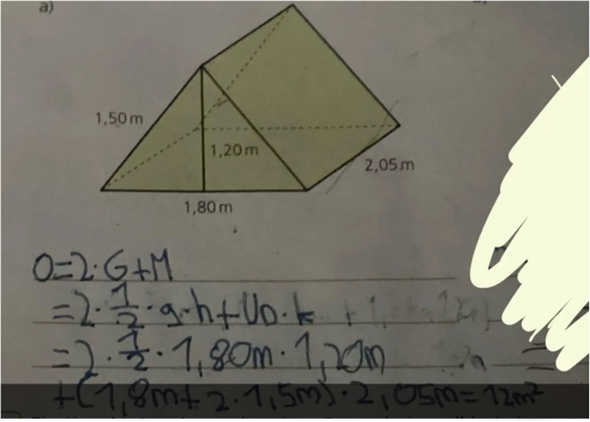 a)
1,50 m
1,20 m
2,05 m
1,80 m
O=2·G+M
=2·1/2·g·h+U_D·k
=2·1/2·1,80m·1,20m
+(1,8m+2·1,5m)·2,05m=12m²